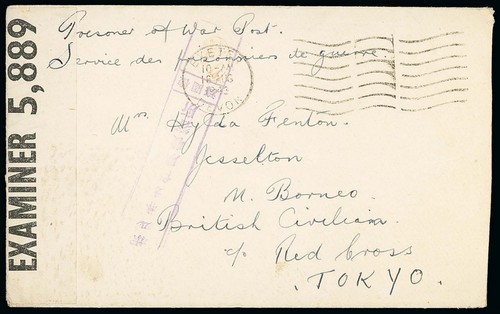 EXAMINER 5,889
Prisoner of War Post.
Service des prisonniers de guerre
Mrs Hylda Fenton.
Jesselton
N. Borneo.
British Civilian.
c/o Red Cross
. TOKYO.